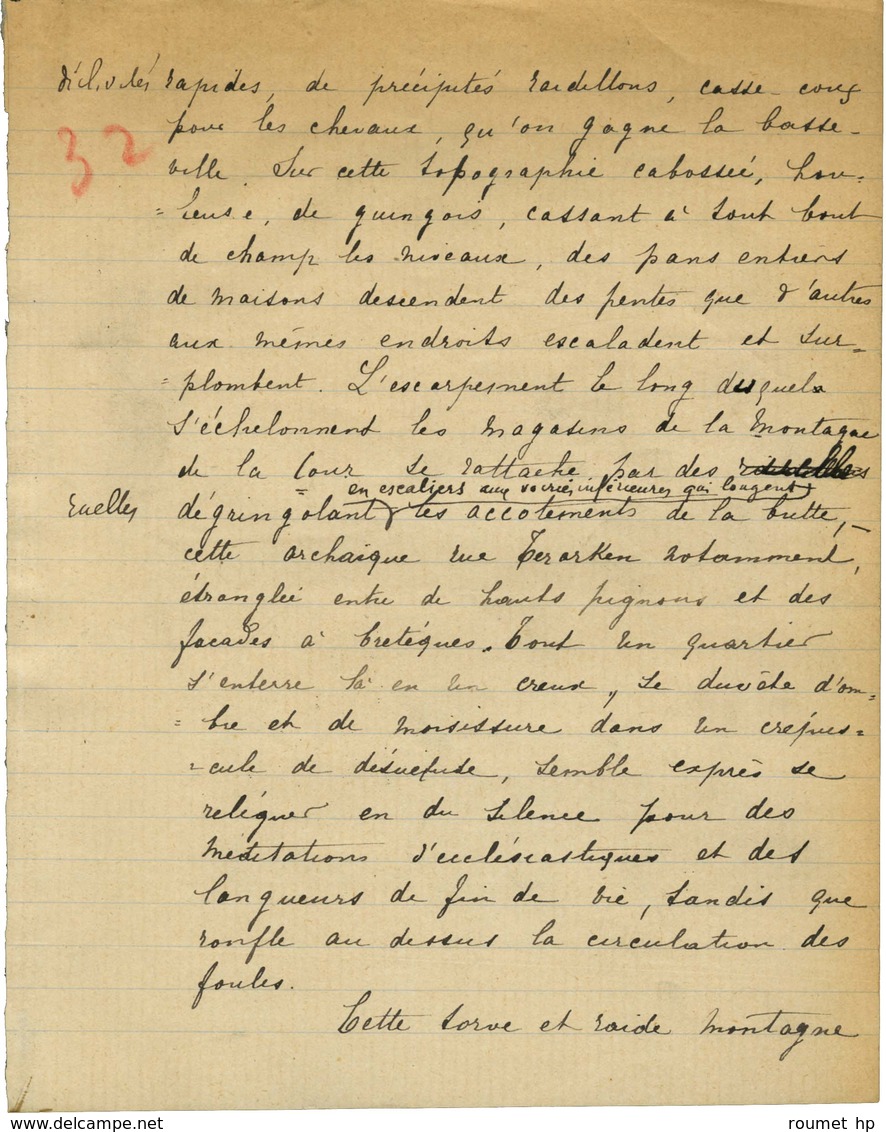 déclivités rapides, de précipités raidillons, casse-cous
32
pour les chevaux, qu'on gagne la basse-
ville. Sur cette topographie cabossée, hou-
=leuse, de guingois, cassant à tout bout
de champ les niveaux, des pans entiers
de maisons descendent des pentes que d'autres
aux mêmes endroits escaladent et sur=
=plombent. L'escarpement le long duquel
s'échelonnent les magasins de la Montagne
de la Cour se rattache par des
en escaliers aux voiries inférieures qui longent
ruelles dégringolant les accotements de la butte,
cette archaïque rue Terarken notamment,
étranglée entre de hauts pignons et des
façades à bretèques. Tout un quartier
s'enterre là en un creux, se duvète d'om=
=bre et de moisissure dans un crépus=
=cule de désuétude, semble exprès se
reléguer en du silence pour des
méditations d'ecclésiastiques et des
langueurs de fin de vie, tandis que
ronfle au dessus la circulation des
foules.
Cette torve et raide montagne
roumet hp